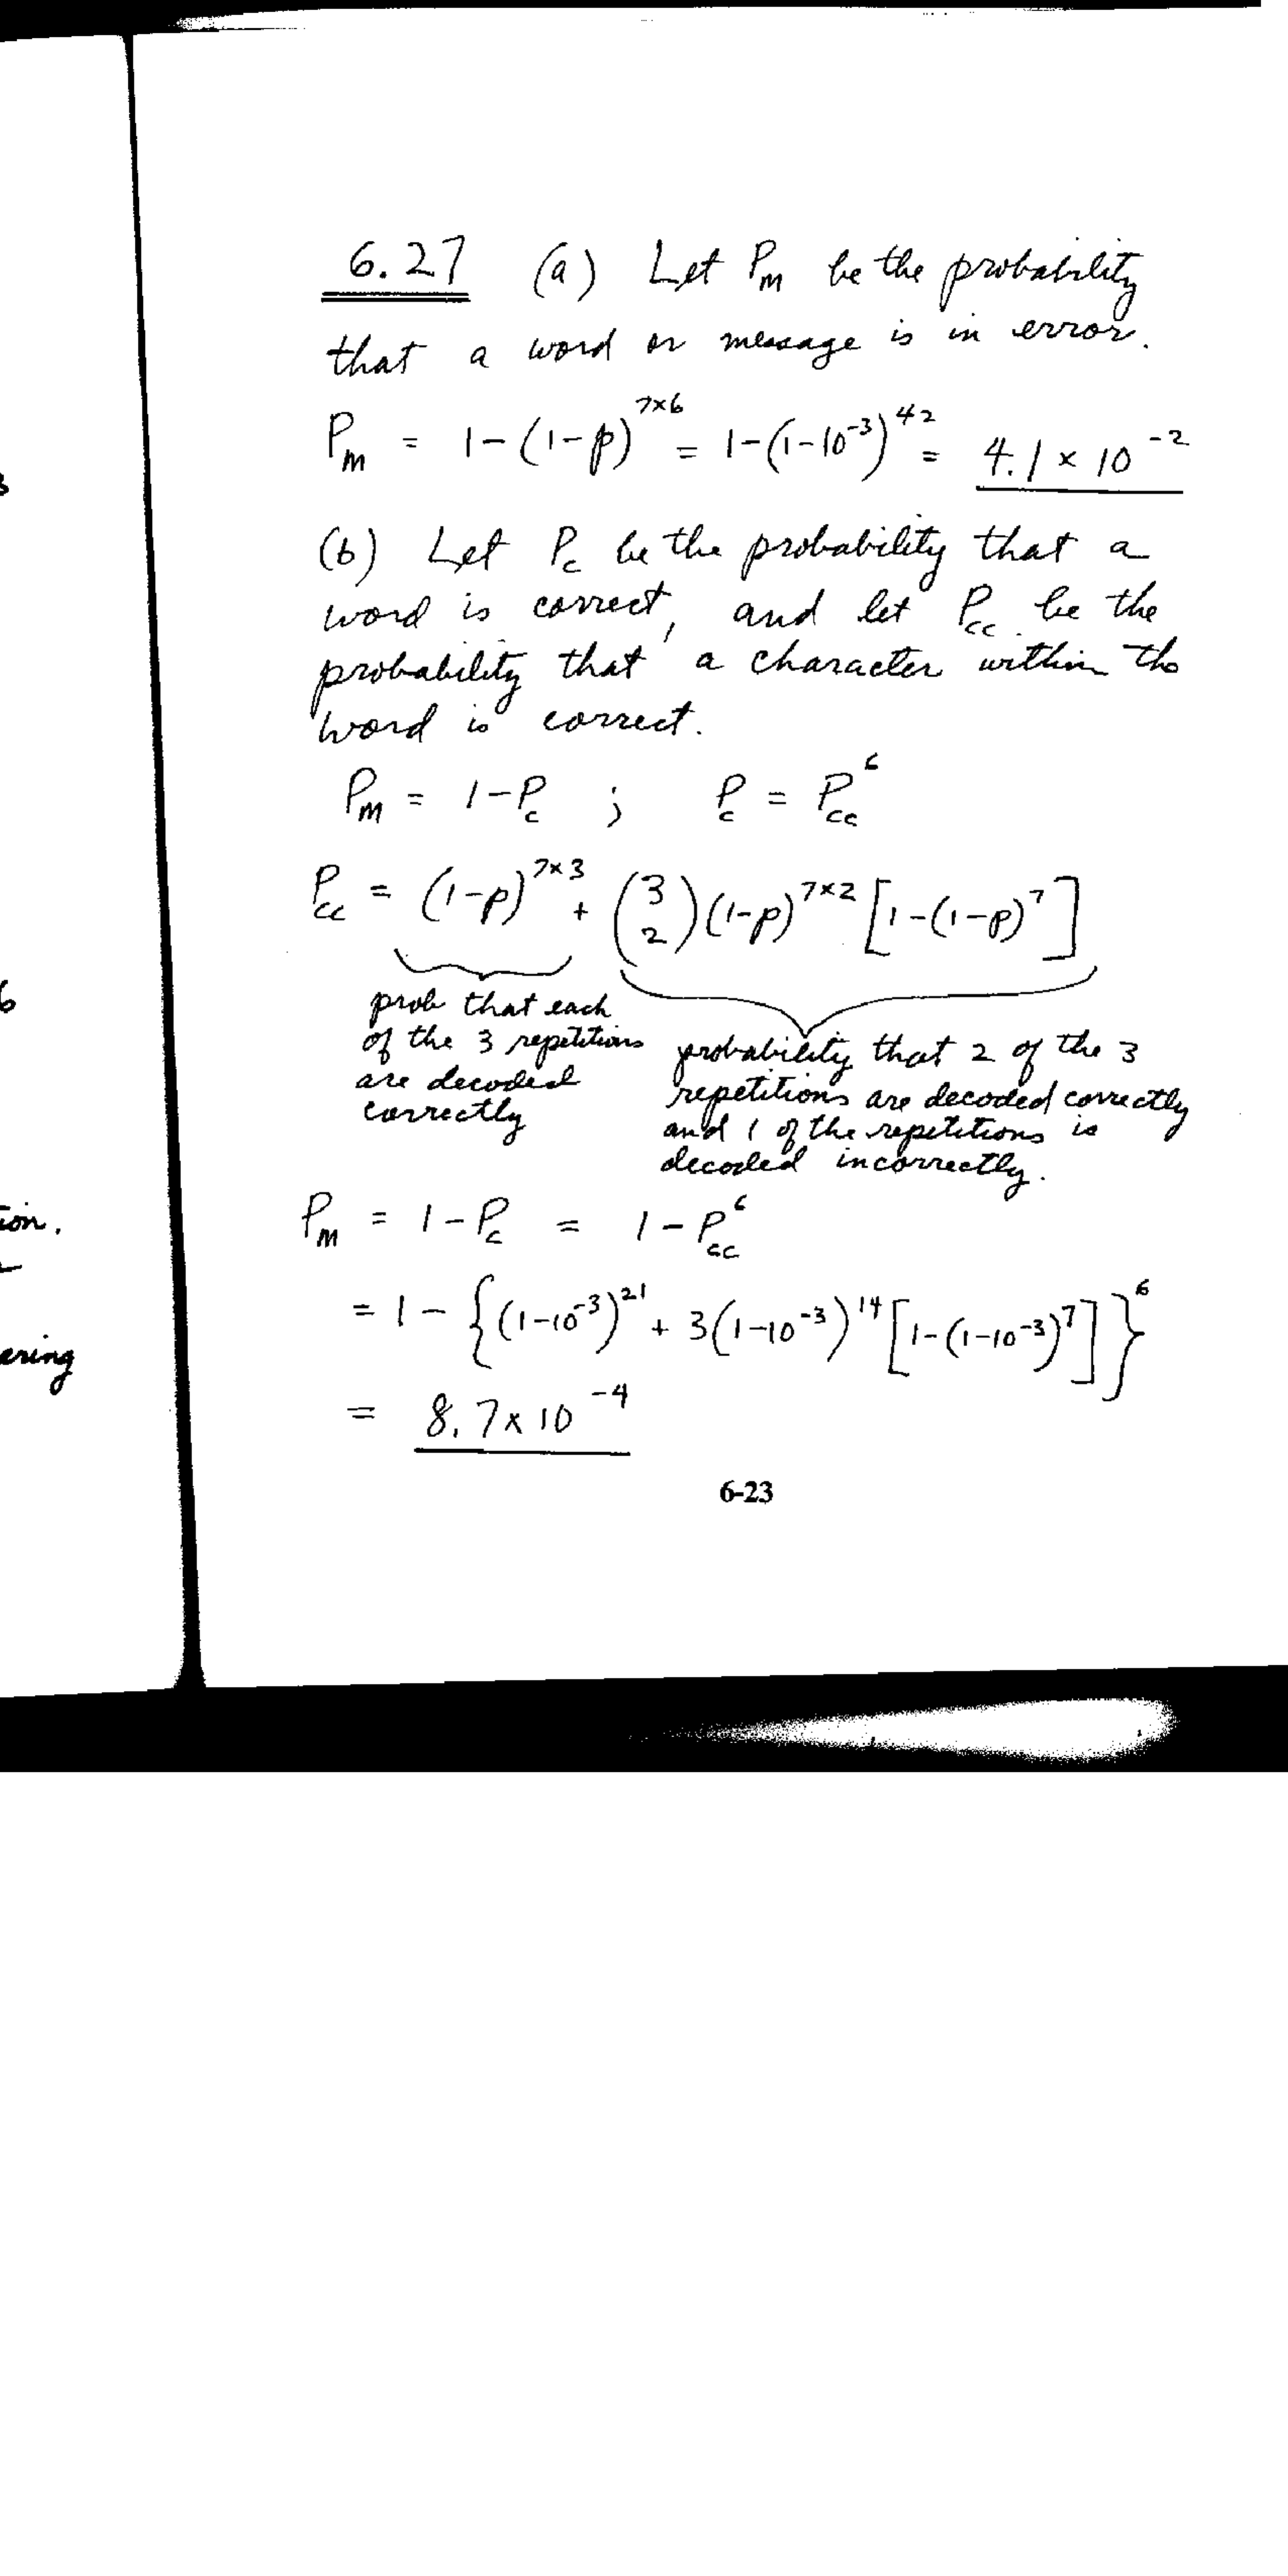 6.27 (a) Let Pm be the probability
that a word or message is in error.
Pm = 1-(1-p)^7x6 = 1-(1-10^-3)^42 = 4.1 x 10^-2
(b) Let Pc be the probability that a
word is correct, and let Pcc be the
probability that a character within the
word is correct.
Pm = 1-Pc ; Pc = Pcc^6
Pcc = (1-p)^7x3 + (3 2)(1-p)^7x2 [1-(1-p)^7]
prob that each
of the 3 repetitions
are decoded
correctly
probability that 2 of the 3
repetitions are decoded correctly
and 1 of the repetitions is
decoded incorrectly.
Pm = 1-Pc = 1-Pcc^6
= 1 - {(1-10^-3)^21 + 3(1-10^-3)^14 [1-(1-10^-3)^7]}^6
= 8.7 x 10^-4
6-23
ion.
ering